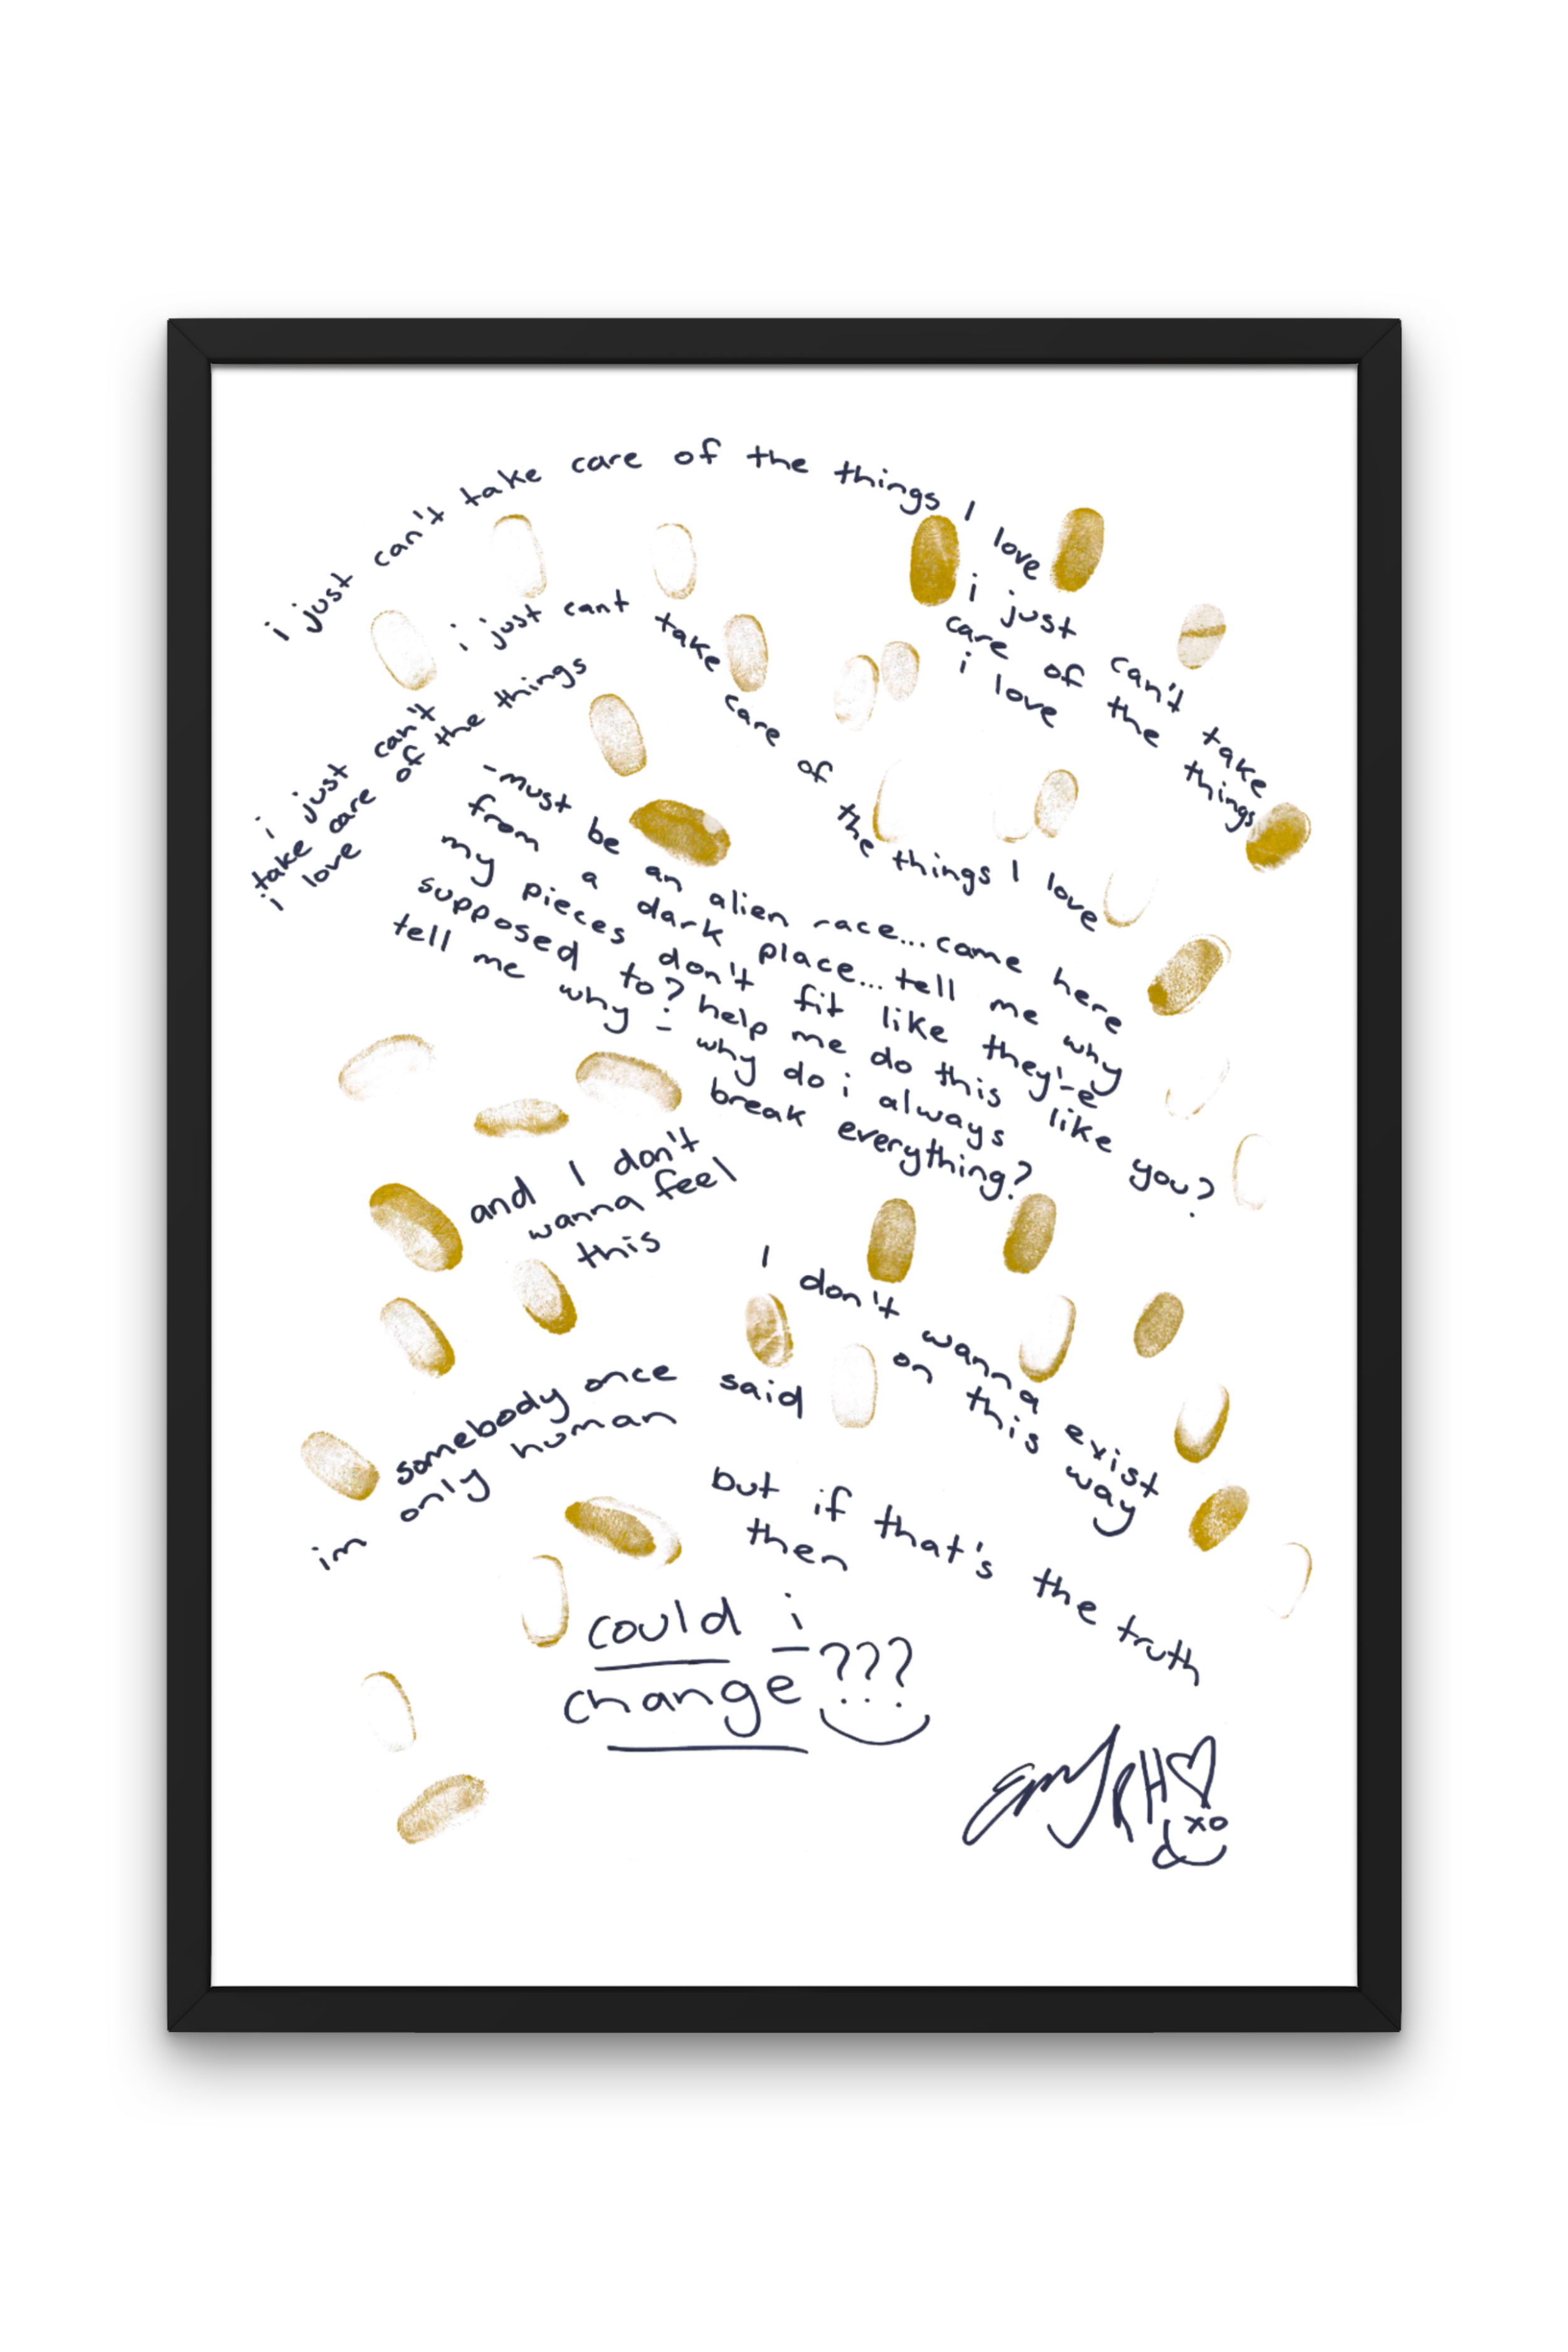 i just can't take care of the things I love
i just can't take
care of the things
i love
i just cant take care of the things I love
i just can't
take care of the things
i love
-must be an alien race... came here
from a dark place... tell me why
my pieces don't fit like they're
supposed to? help me do this like you?
tell me why - why do i always
break everything?
and I don't
wanna feel
this
I don't wanna exist
on this way
somebody once said
im only human
but if that's the truth
then
could i
change???
xo